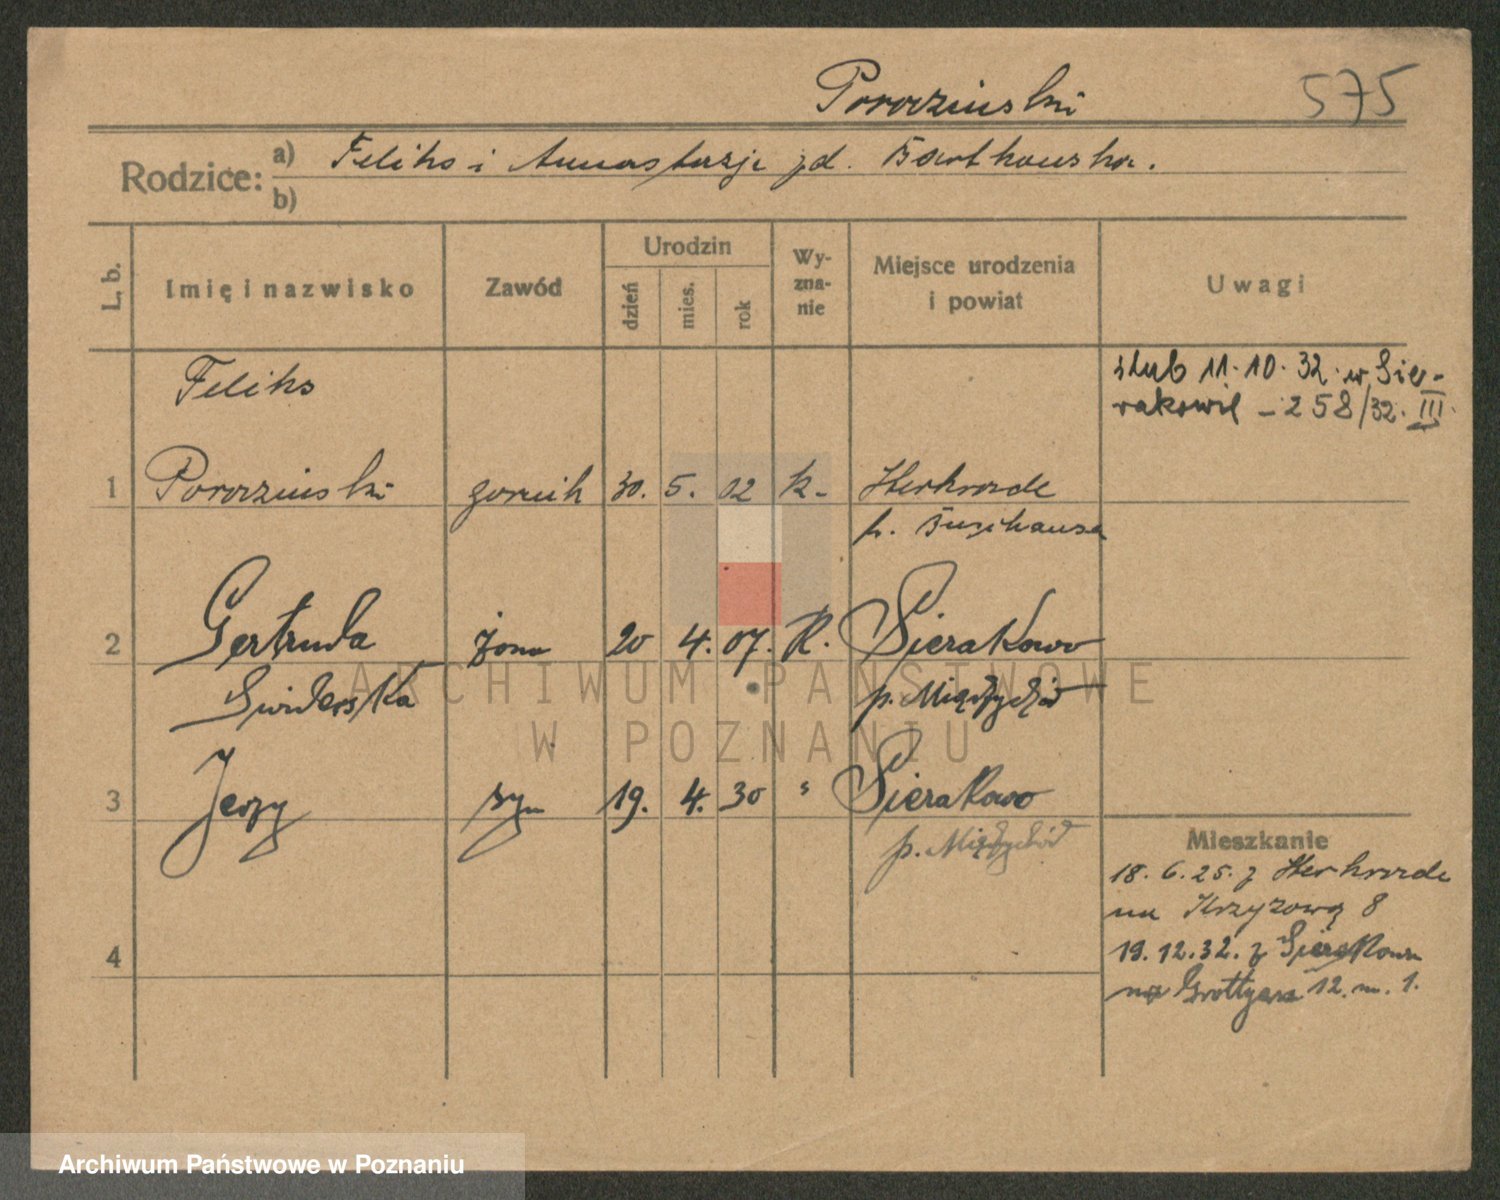 575
Rodzice: a) Feliks i
b)
L. b.
Imię i nazwisko
Zawód
Urodzin
dzień
mies.
rok
Wy-
zna-
nie
Miejsce urodzenia
i powiat
Uwagi
ślub 11.10.32. w Sie-
rakowie – 258/32. III
Feliks
1 30. 5. 02 k.
p.
2 Gertruda żona 20 4. 07. K. Sierakowo
p. Międzychód
3 Jerzy syn 19. 4. 30 " Sierakowo
p. Międzychód
4
Mieszkanie
18.6.25. z
na Krzyżową 8
19.12.32. z Sierakowa
na Grottgera 12. m. 1.
ARCHIWUM PAŃSTWOWE
W POZNANIU
Archiwum Państwowe w Poznaniu